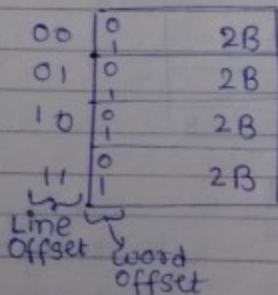 00 0 2B
1
01 0 2B
1
10 0 2B
1
11 0 2B
1
Line Offset
Word Offset